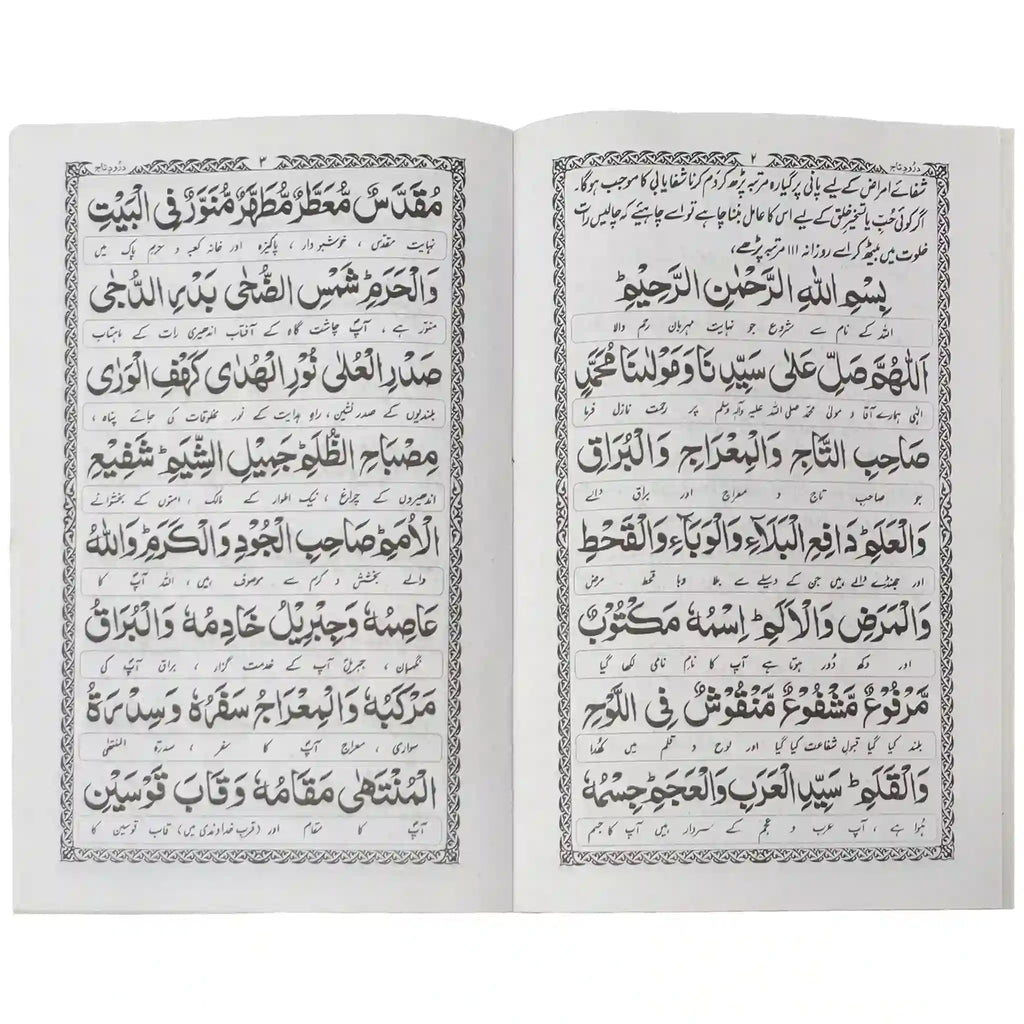 ۲
درود تاج
شفائے امراض کے لیے پانی پر گیارہ مرتبہ پڑھ کر دم کرنا شفایابی کا موجب ہوگا۔
اگر کوئی حُبّ یا تسخیر خلق کے لیے اس کا عامل بننا چاہے تو اسے چاہیئے کہ چالیس رات
خلوت میں بیٹھ کر اسے روزانہ ۱۱۱ مرتبہ پڑھے،
بِسْمِ اللّٰهِ الرَّحْمٰنِ الرَّحِيْمِ ط
اللہ کے نام سے شروع جو نہایت مہربان رحم والا
اَللّٰهُمَّ صَلِّ عَلٰى سَيِّدِنَا وَمَوْلٰينَا مُحَمَّدٍ
الٰہی ہمارے آقا و مولیٰ محمد صلی اللہ علیہ وآلہ وسلم پر رحمت نازل فرما
صَاحِبِ التَّاجِ وَالْمِعْرَاجِ وَالْبُرَاقِ
جو صاحب تاج و معراج اور براق والے
وَالْعَلَمِ ط دَافِعِ الْبَلَآءِ وَالْوَبَآءِ وَالْقَحْطِ
اور جھنڈے والے ہیں جن کے وسیلے سے بلا وبا قحط مرض
وَالْمَرَضِ وَالْاَلَمِ ط اِسْمُهٗ مَكْتُوْبٌ
اور دکھ دُور ہوتا ہے آپ کا نام نامی لکھا گیا
مَّرْفُوْعٌ مَّشْفُوْعٌ مَّنْقُوْشٌ فِى اللَّوْحِ
بلند کیا گیا قبول شفاعت کیا گیا اور لوح و قلم میں کھُدا
وَالْقَلَمِ ط سَيِّدِ الْعَرَبِ وَالْعَجَمِ ط جِسْمُهٗ
ہُوا ہے ، آپ عرب و عجم کے سردار ہیں آپ کا جسم
۳
درود تاج
مُقَدَّسٌ مُّعَطَّرٌ مُّطَهَّرٌ مُّنَوَّرٌ فِى الْبَيْتِ
نہایت مقدس ، خوشبودار ، پاکیزہ اور خانہ کعبہ و حرم پاک میں
وَالْحَرَمِ ط شَمْسِ الضُّحٰى بَدْرِ الدُّجٰى
منور ہے ، آپؐ چاشت گاہ کے آفتاب اندھیری رات کے ماہتاب
صَدْرِ الْعُلٰى نُوْرِ الْهُدٰى كَهْفِ الْوَرٰى
بلندیوں کے صدر نشین ، راہِ ہدایت کے نور مخلوقات کی جائے پناہ ،
مِصْبَاحِ الظُّلَمِ ط جَمِيْلِ الشِّيَمِ ط شَفِيْعِ
اندھیروں کے چراغ ، نیک اطوار کے مالک ، امتوں کے بخشوانے
الْاُمَمِ ط صَاحِبِ الْجُوْدِ وَالْكَرَمِ ط وَاللّٰهُ
والے بخشش و کرم سے موصوف ہیں ، اللہ آپؐ کا
عَاصِمُهٗ وَجِبْرِيْلُ خَادِمُهٗ وَالْبُرَاقُ
نگہبان ، جبریلؑ آپ کے خدمت گزار ، براق آپؐ کی
مَرْكَبُهٗ وَالْمِعْرَاجُ سَفَرُهٗ وَسِدْرَةُ
سواری ، معراج آپؐ کا سفر ، سدرۃ المنتهٰی
الْمُنْتَهٰى مَقَامُهٗ وَقَابَ قَوْسَيْنِ
آپؐ کا مقام اور (قرب خداوندی میں) قاب قوسین کا